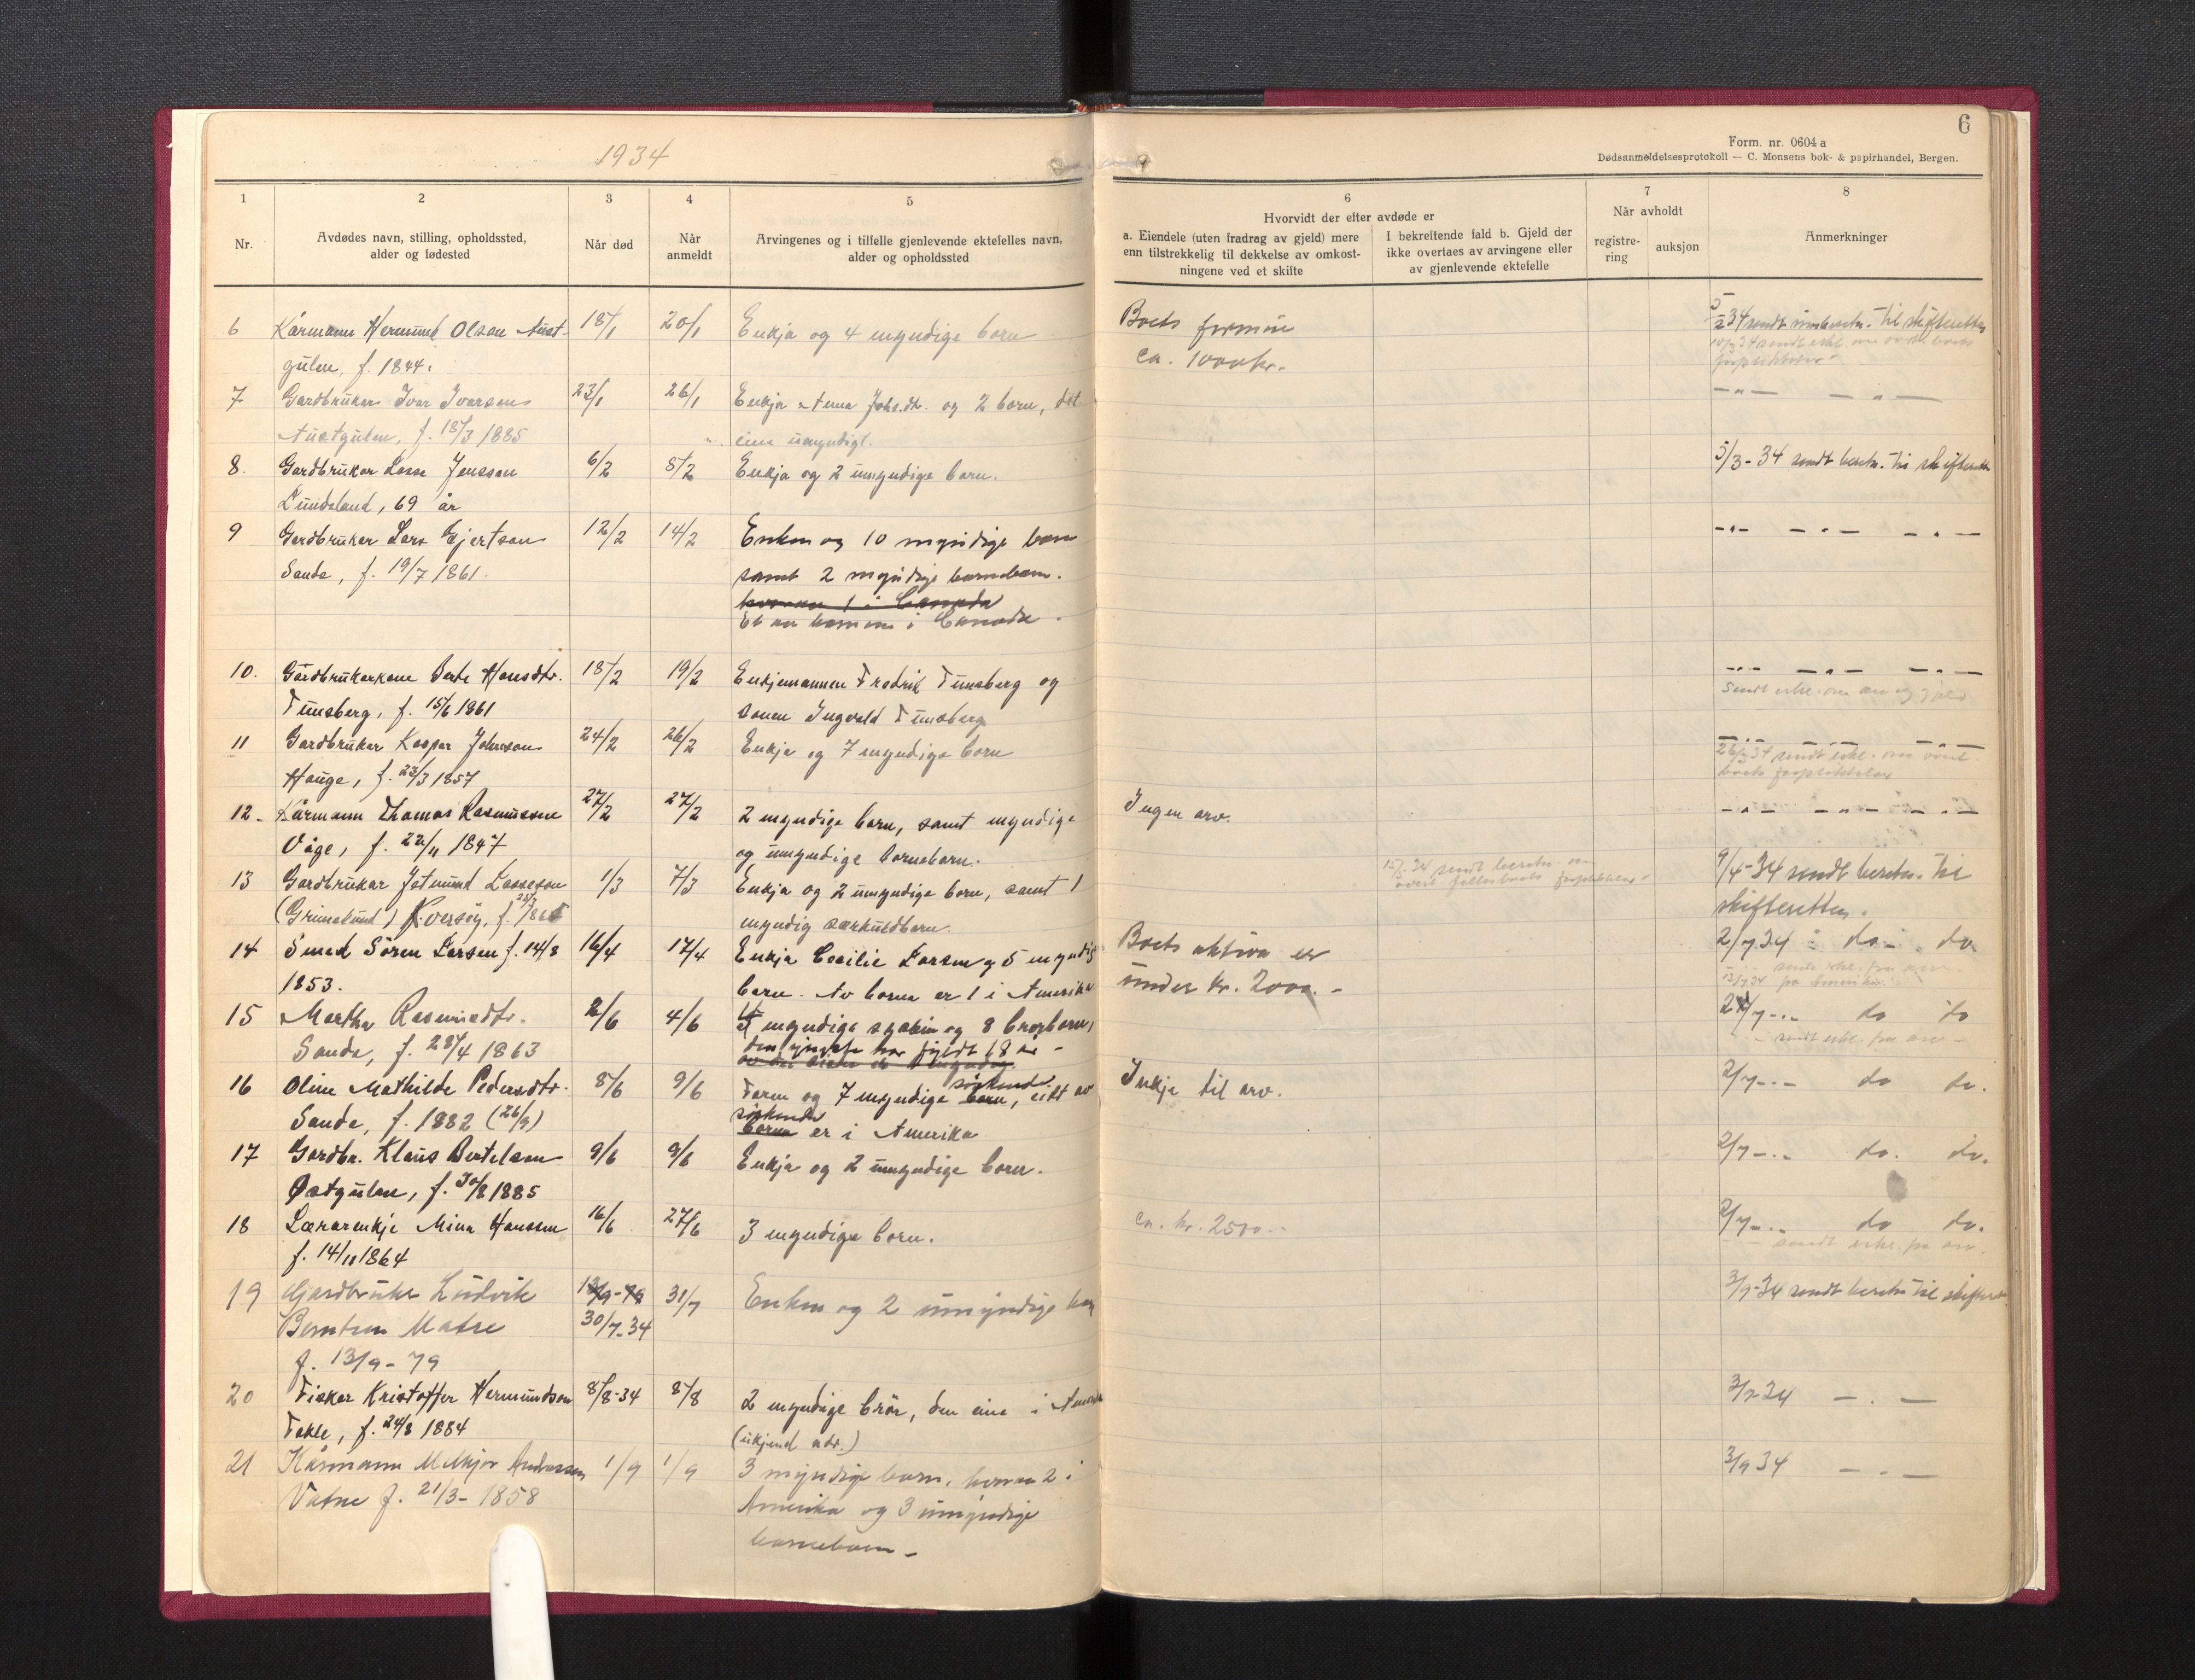 1934
6
Form. nr. 0604 a
Dødsanmeldelsesprotokoll — C. Monsens bok- & papirhandel, Bergen.
1 2 3 4 5 6 7 8
Nr.
Avdødes navn, stilling, opholdssted,
alder og fødested
Når død
Når
anmeldt
Arvingenes og i tilfelle gjenlevende ektefelles navn,
alder og opholdssted
Hvorvidt der efter avdøde er
a. Eiendele (uten fradrag av gjeld) mere
enn tilstrekkelig til dekkelse av omkost-
ningene ved et skifte
I bekreftende fald b. Gjeld der
ikke overtaes av arvingene eller
av gjenlevende ektefelle
Når avholdt
registre-
ring
auksjon
Anmerkninger
6 Kårmann Hermund Olson Aust- 18/1 20/1 Enkja og 4 myndige born Boets formue
gulen, f. 1844. ca. 1000 kr.
7 Gardbrukar Ivar Ivarson 23/1 26/1 Enkja Anna Johs.dtr. og 2 born, det
Austgulen, f. 18/3 1885 eine umyndigt.
8. Gardbrukar Lasse Jensson 6/2 8/2 Enkja og 2 umyndige born. 5/3-34 sendt beretn. til skifteretten
Lundsland, 69 år
9 Gardbrukar Lars Gjertson 12/2 14/2 Enken og 10 myndige born
Sande, f. 19/7 1861. samt 2 myndige barnebarn.
hvorav 1 i Canada
Et av barna i Canada.
10. Gardbrukarkone Berte Hansdtr. 18/2 19/2 Enkjemannen Fredrik Tunsberg og
Tunsberg, f. 15/6 1861 sonen Ingvald Tunsberg
11 Gardbrukar Kaspar Johnson 24/2 26/2 Enkja og 7 myndige born
Hauge, f. 23/3 1857
12. Kårmann Thomas Rasmusson 27/2 27/2 2 myndige born, samt myndige Ingen arv.
Våge, f. 22/11 1847 og umyndige borneborn.
13 Gardbrukar Jetmund Lasseson 1/3 7/3 Enkja og 2 umyndige born, samt 1 9/4-34 sendt beretn. til
(Grimelund) Kversøy, f. myndig særkuldborn. skifteretten.
14 Smed Sören Larsen f. 14/8 16/4 17/4 Enkja Cecilie Larsen og 5 myndige Boets aktiva er 2/7.34 do do
1853. born. Av borna er 1 i Amerika under kr. 2000.-
15 Martha Rasmusdtr. 2/6 4/6 myndige syskin og 8 brorborn, do do
Sande, f. 28/4 1863 den yngste har fyldt 18 år -
16 Oline Mathilde Pedersdtr. 8/6 9/6 Faren og 7 myndige born søskend, eitt av Inkje til arv. 2/7 -.- do do.
Sande, f. 1882 (26/9) borna søskende er i Amerika
17 Gardbr. Klaus Bertelsen 9/6 9/6 Enkja og 2 umyndige born. 2/7 -.- do. do.
Østgulen, f. 30/8 1885
18 Lærarenkje Mina Hanssen 16/6 27/6 3 myndige born. ca. kr. 2500.- 2/7 -.- do do.
f. 14/11 1864
19 Gardbruker Ludvik 13/9-79 31/7 Enken og 2 umyndige barn 3/9-34 sendt beretn til skifteret.
Berntsen Matre 30/7-34
f. 13/9-79
20 Fiskar Kristoffer Hermundson 8/8-34 8/8 2 myndige brör, den eine i Amerika 3/9-34 - . -
Takle, f. 24/8 1884 (ukjend adr.)
21 Kårmann Melkjor Andersson 1/9 1/9 3 myndige barn, hvorav 2 i 3/9 34 - . -
Vatne f. 21/3-1858 Amerika og 3 umyndige
barnebarn -